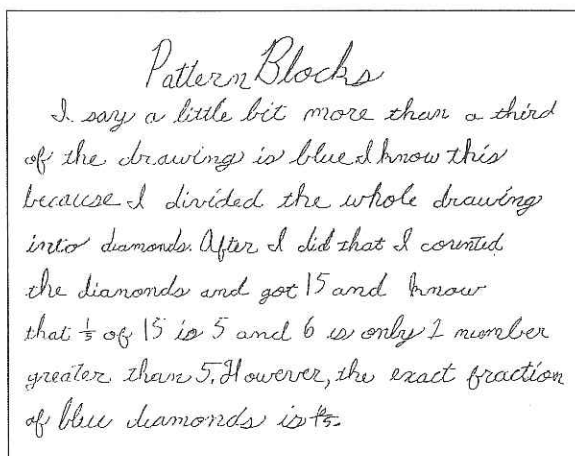 Pattern Blocks
I say a little bit more than a third
of the drawing is blue I know this
because I divided the whole drawing
into diamonds. After I did that I counted
the diamonds and got 15 and know
that 1/3 of 15 is 5 and 6 is only 1 number
greater than 5. However, the exact fraction
of blue diamonds is 6/15.